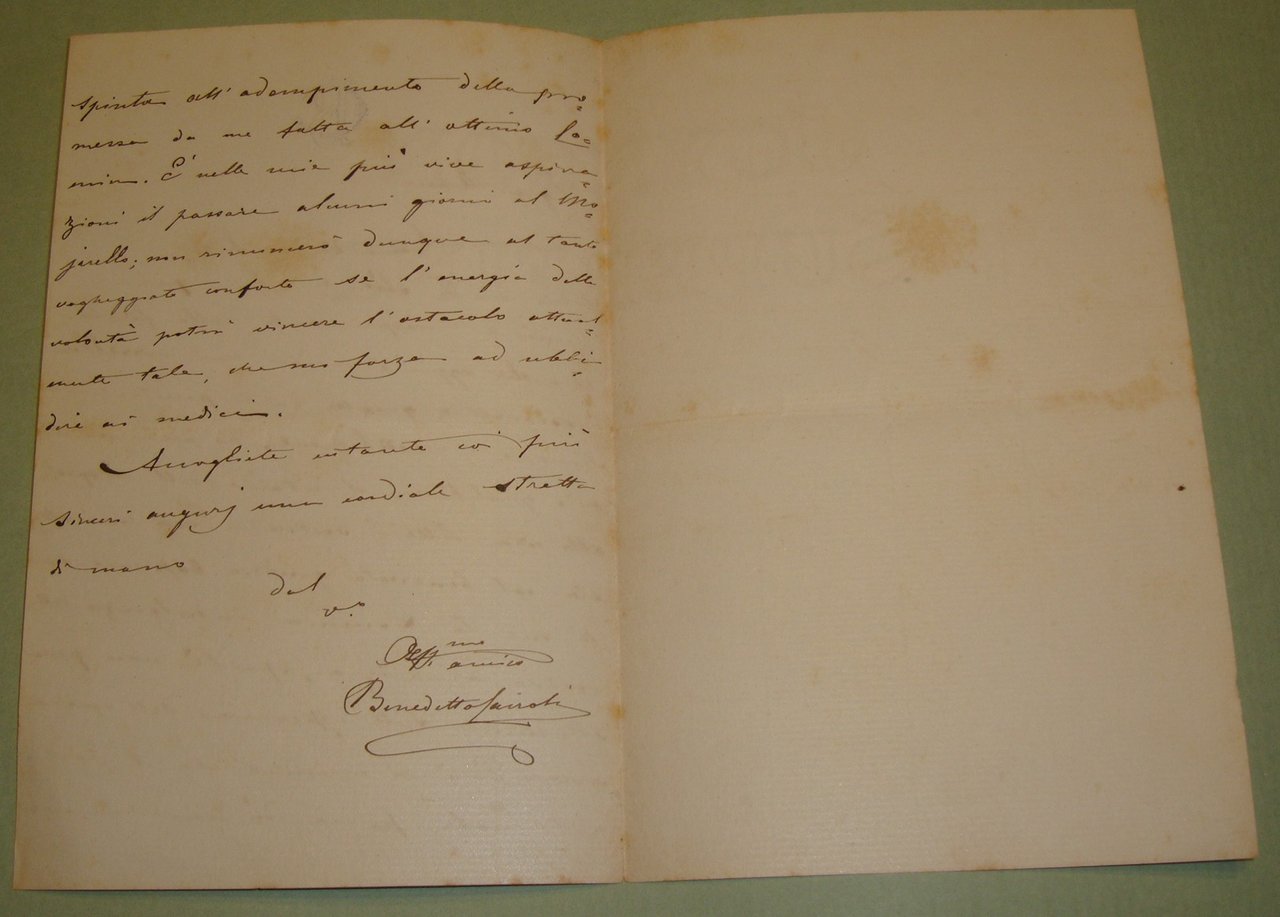 spinta all'adempimento della pro=
messa da me fatta all'ottimo Lo=
emia. È nelle mie più vive aspira=
zioni il passare alcuni giorni al Mo=
jarello; non rinuncerò dunque al tanto
vagheggiato conforto se l'energia della
volontà potrà vincere l'ostacolo attual=
mente tale, che mi forza ad ubbi=
dire ai medici.
Accogliete intanto coi più
sinceri augurj una cordiale stretta
di mano
del
v.o
Aff.mo
amico
Benedetto Cairoli